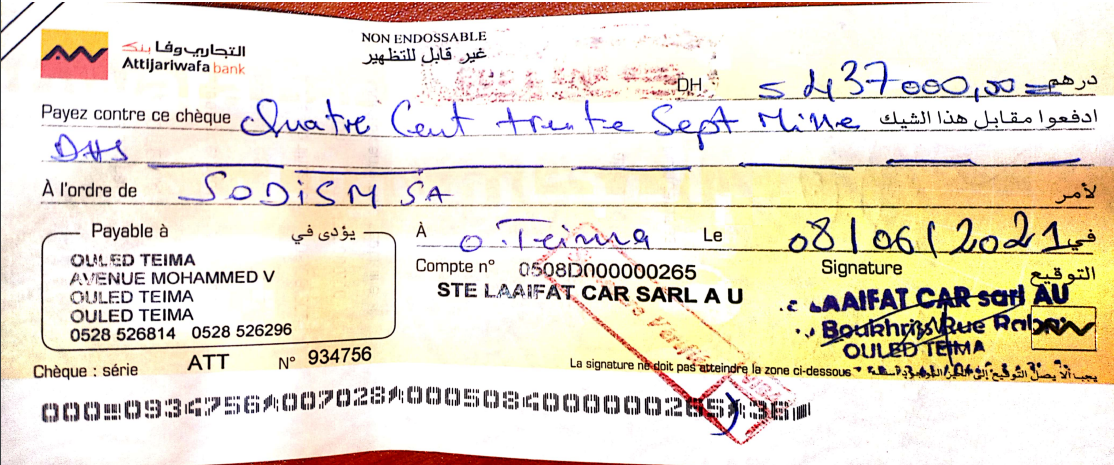 التجاري وفا بنك
Attijariwafa bank
NON ENDOSSABLE
غير قابل للتظهير
DH 437000,00 درهم
Payez contre ce chèque Quatre Cent trente Sept Mille ادفعوا مقابل هذا الشيك
DHS
À l'ordre de SODiSM SA لأمر
Payable à يؤدى في
OULED TEIMA
AVENUE MOHAMMED V
OULED TEIMA
OULED TEIMA
0528 526814 0528 526296
À O.Teima Le 08/06/2021 في
Compte n° 0508D000000265
STE LAAIFAT CAR SARL A U
Signature التوقيع
LAAIFAT CAR sarl AU
Boukhriss Rue
OULED TEIMA
Chèque : série ATT N° 934756
La signature ne doit pas atteindre la zone ci-dessous
0934756 007028 000508400000026 36